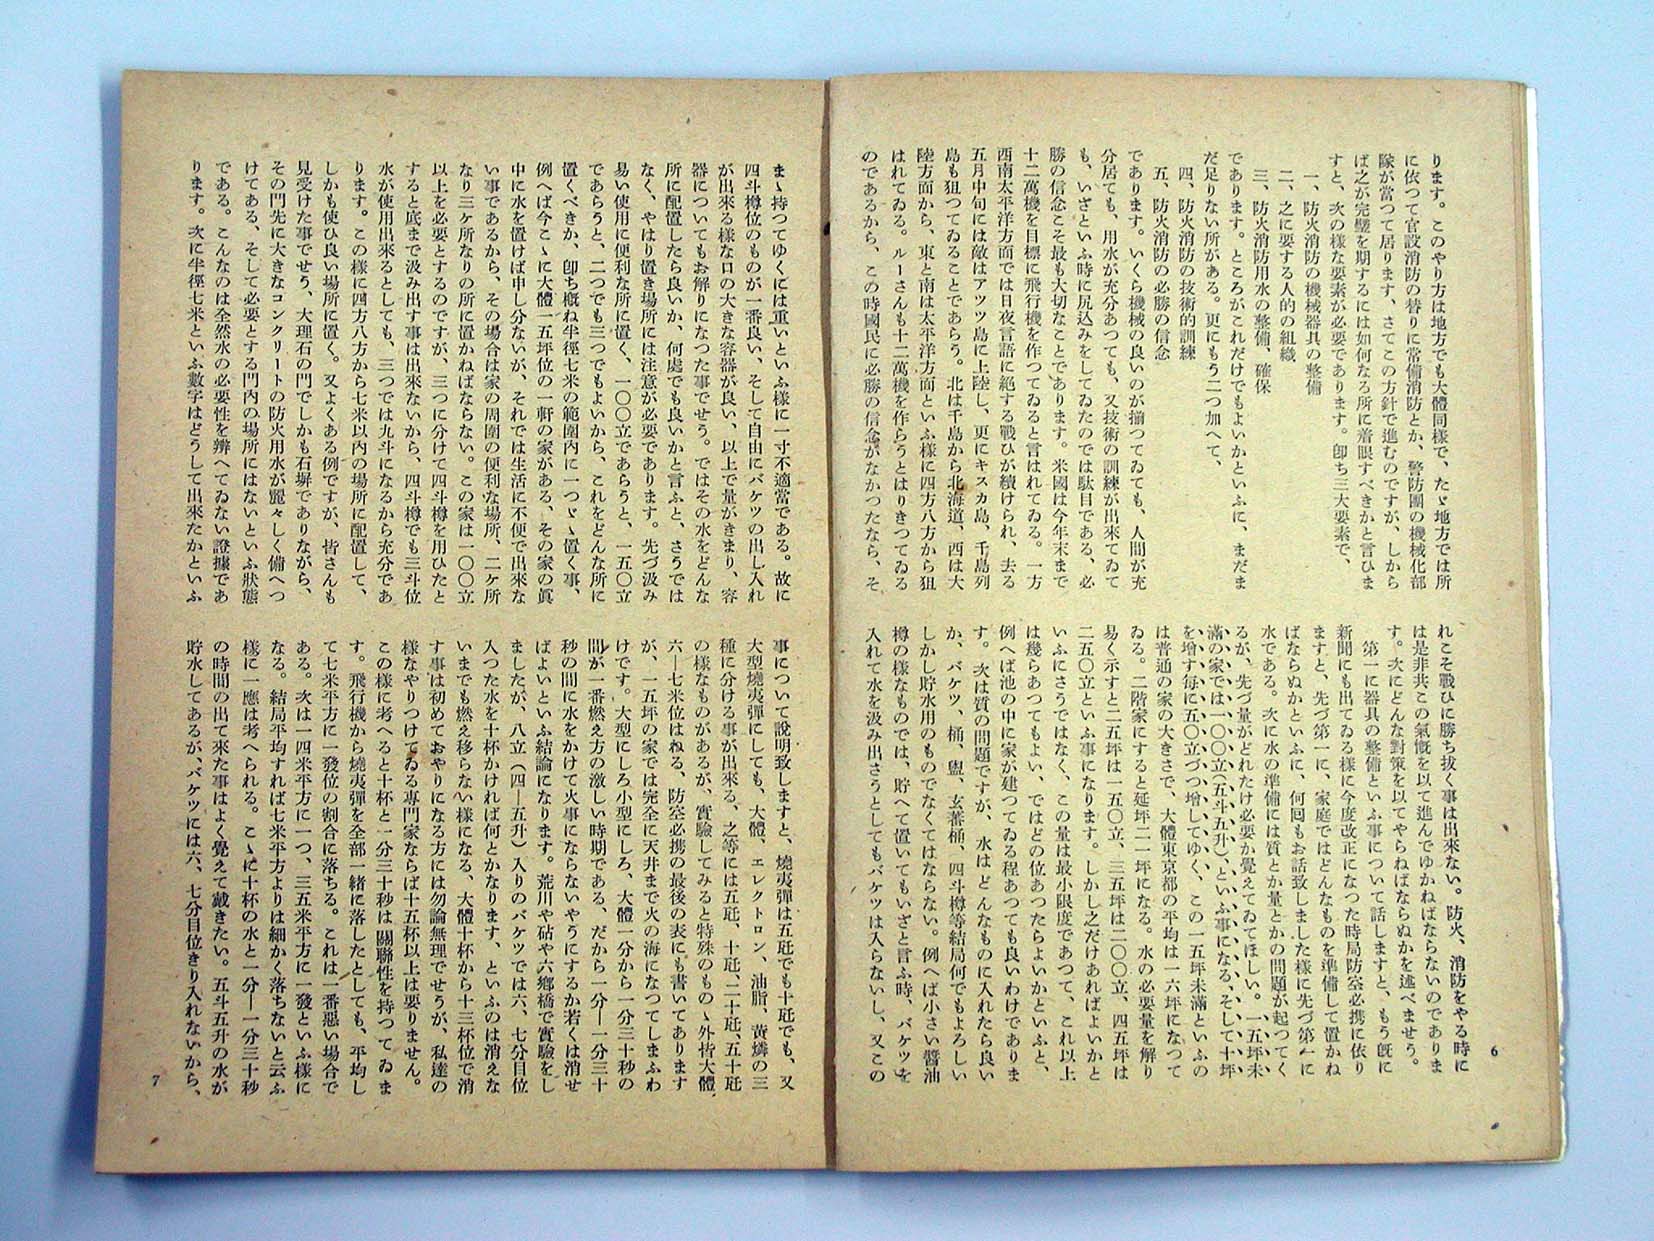 ります。このやり方は地方でも大體同樣で、たゞ地方では所
に依つて官設消防の替りに常備消防とか、警防團の機械化部
隊が當つて居ります、さてこの方針で進むのですが、しから
ば之が完璧を期するには如何なる所に着眼すべきかと言ひま
すと、次の樣な要素が必要であります。卽ち三大要素で、
一、防火消防の機械器具の整備
二、之に要する人的の組織
三、防火消防用水の整備、確保
であります。ところがこれだけでもよいかといふに、まだま
だ足りない所がある。更にもう二つ加へて、
四、防火消防の技術的訓練
五、防火消防の必勝の信念
であります。いくら機械の良いのが揃つてゐても、人間が充
分居ても、用水が充分あつても、又技術の訓練が出來てゐて
も、いざといふ時に尻込みをしてゐたのでは駄目である、必
勝の信念こそ最も大切なことであります。米國は今年末まで
十二萬機を目標に飛行機を作つてゐると言はれてゐる。一方
西南太平洋方面では日夜言語に絶する戰ひが續けられ、去る
五月中旬には敵はアツツ島に上陸し、更にキスカ島、千島列
島も狙つてゐることであらう。北は千島から北海道、西は大
陸方面から、東と南は太平洋方面といふ樣に四方八方から狙
はれてゐる。ルーさんも十二萬機を作らうとはりきつてゐる
のであるから、この時國民に必勝の信念がなかつたなら、そ
れこそ戰ひに勝ち拔く事は出來ない。防火、消防をやる時に
は是非共この氣慨を以て進んでゆかねばならないのでありま
す。次にどんな對策を以てやらねばならぬかを述べませう。
第一に器具の整備といふ事について話しますと、もう旣に
新聞にも出てゐる樣に今度改正になつた時局防空必携に依り
ますと、先づ第一に、家庭ではどんなものを準備して置かね
ばならぬかといふに、何回もお話致しました樣に先づ第一に
水である。次に水の準備には質とか量とかの問題が起つてく
るが、先づ量がどれだけ必要か覺えてゐてほしい。一五坪未
滿の家では一〇〇立(五斗五升)、といふ事になる、そして十坪
を增す每に五〇立づつ增してゆく、この一五坪未滿といふの
は普通の家の大きさで、大體東京都の平均は一六坪になつて
ゐる。二階家にすると延坪二一坪になる。水の必要量を解り
易く示すと二五坪は一五〇立、三五坪は二〇〇立、四五坪は
二五〇立といふ事になります。しかし之だけあればよいかと
いふにさうではなく、この量は最小限度であつて、これ以上
は幾らあつてもよい、ではどの位あつたらよいかといふと、
例へば池の中に家が建つてゐる程あつても良いわけでありま
す。次は質の問題ですが、水はどんなものに入れたら良い
か、バケツ、桶、盥、玄蕃桶、四斗樽等結局何でもよろしい
しかし貯水用のものでなくてはならない。例へば小さい醬油
樽の樣なものでは、貯へて置いてもいざと言ふ時、バケツを
入れて水を汲み出さうとしてもバケツは入らないし、又この
6
まゝ持つてゆくには重いといふ樣に一寸不適當である。故に
四斗樽位のものが一番良い、そして自由にバケツの出し入れ
が出來る樣な口の大きな容器が良い、以上で量がきまり、容
器についてもお解りになつた事でせう。ではその水をどんな
所に配置したら良いか、何處でも良いかと言ふと、さうでは
なく、やはり置き場所には注意が必要であります。先づ汲み
易い使用に便利な所に置く、一〇〇立であらうと、一五〇立
であらうと、二つでも三つでもよいから、これをどんな所に
置くべきか、卽ち概ね半徑七米の範圍內に一つゞゝ置く事、
例へば今こゝに大體一五坪位の一軒の家がある、その家の眞
中に水を置けば申し分ないが、それでは生活に不便で出來な
い事であるから、その場合は家の周圍の便利な場所、二ヶ所
なり三ヶ所なりの所に置かねばならない。この家は一〇〇立
以上を必要とするのですが、三つに分けて四斗樽を用ひたと
すると底まで汲み出す事は出來ないから、四斗樽でも三斗位
水が使用出來るとしても、三つでは九斗になるから充分であ
ります。この樣に四方八方から七米以內の場所に配置して、
しかも使ひ良い場所に置く。又よくある例ですが、皆さんも
見受けた事でせう、大理石の門でしかも石塀でありながら、
その門先に大きなコンクリートの防火用水が麗々しく備へつ
けてある、そして必要とする門內の場所にはないといふ狀態
である。こんなのは全然水の必要性を辨へてゐない證據であ
ります。次に半徑七米といふ數字はどうして出來たかといふ
事について說明致しますと、燒夷彈は五瓩でも十瓩でも、又
大型燒夷彈にしても、大體、エレクトロン、油脂、黃燐の三
種に分ける事が出來る、之等には五瓩、十瓩、二十瓩、五十瓩
の樣なものがあるが、實驗してみると特殊のものゝ外皆大體
六―七米位はねる、防空必携の最後の表にも書いてあります
が、一五坪の家では完全に天井まで火の海になつてしまふわ
けです。大型にしろ小型にしろ、大體一分から一分三十秒の
間が一番燃え方の激しい時期である、だから一分―一分三十
秒の間に水をかけて火事にならないやうにするか若くは消せ
ばよいといふ結論になります。荒川や砧や六鄕橋で實驗をし
ましたが、八立(四―五升)入りのバケツでは六、七分目位
入つた水を十杯かければ何とかなります、といふのは消えな
いまでも燃え移らない樣になる、大體十杯から十三杯位で消
す事は初めておやりになる方には勿論無理でせうが、私達の
樣なやりつけてゐる專門家ならば十五杯以上は要りません。
この樣に考へると十杯と一分三十秒は關聯性を持つてゐま
す。飛行機から燒夷彈を全部一緖に落したとしても、平均し
て七米平方に一發位の割合に落ちる。これは一番惡い場合で
ある。次は一四米平方に一つ、三五米平方に一發といふ樣に
なる。結局平均すれば七米平方よりは細かく落ちないと云ふ
樣に一應は考へられる。こゝに十杯の水と一分―一分三十秒
の時間の出て來た事はよく覺えて戴きたい。五斗五升の水が
貯水してあるが、バケツには六、七分目位きり入れないから、
7